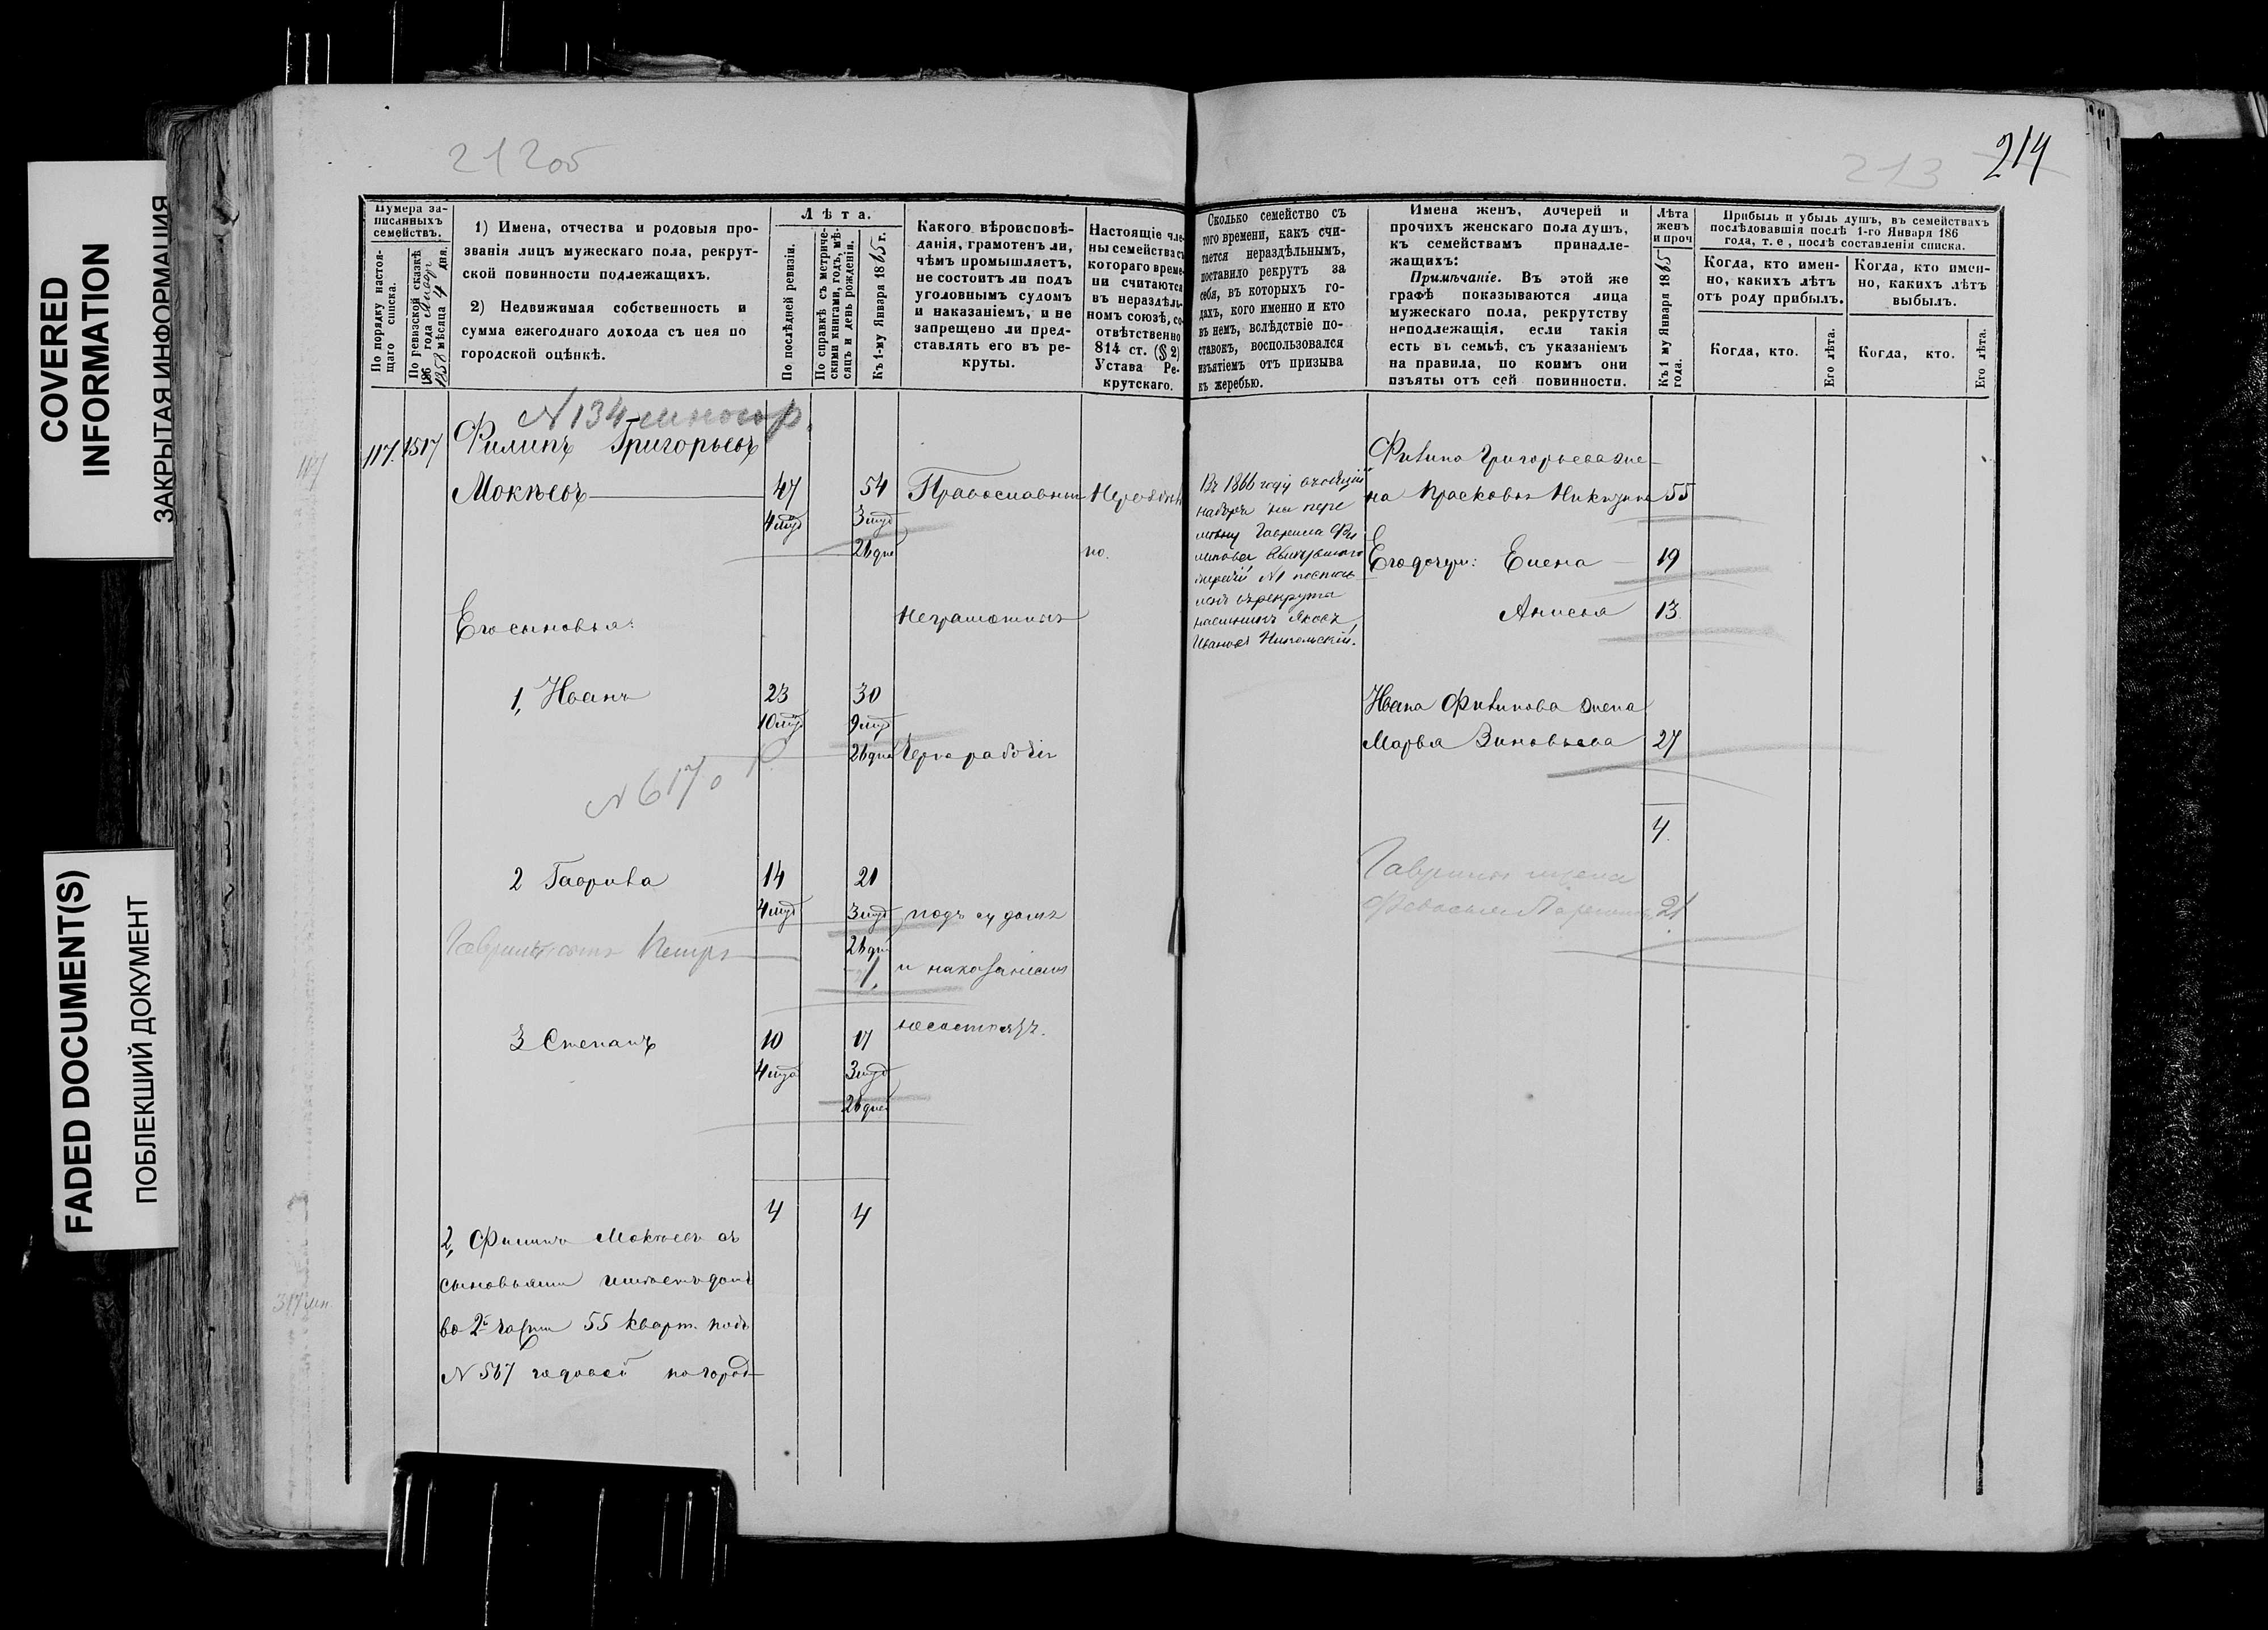 COVERED
INFORMATION
ЗАКРЫТАЯ ИНФОРМАЦИЯ
FADED DOCUMENT(S)
ПОБЛЕКШИЙ ДОКУМЕНТ
212об
Нумера за-
писанныхъ
семействъ.
По порядку настоя-
щаго списка.
По ревизской сказкѣ
186 года
1858 мѣсяца 4 дня.
1) Имена, отчества и родовыя про-
званія лицъ мужескаго пола, рекрут-
ской повинности подлежащихъ.
2) Недвижимая собственность и
сумма ежегоднаго дохода съ нея по
городской оцѣнкѣ.
Лѣта.
По послѣдней ревизіи.
По справкѣ съ метриче-
скими книгами, годъ, мѣ-
сяцъ и день рожденія.
Къ 1-му Января 1865 г.
Какого вѣроисповѣ-
данія, грамотенъ ли,
чѣмъ промышляетъ,
не состоитъ ли подъ
уголовнымъ судомъ
и наказаніемъ, и не
запрещено ли пред-
ставлять его въ ре-
круты.
Настоящіе чле-
ны семейства съ
котораго време-
ни считаются
въ нераздѣль-
номъ союзѣ, со-
отвѣтственно
814 ст. (§ 2)
Устава Ре-
крутскаго.
N 134
117. 1517 Филипъ Григорьевъ
Мокѣевъ 47 54 Православный
4 мѣс 3 мѣс
26 дне но.
Его сыновья: Неграмотны
1, Иванъ 23 30
10 мѣс 9 мѣс
26 дне Чернорабочіе
N 617
2 Гаврила 14 21
4 мѣс 3 мѣс подъ судомъ
26 дне
Гаврилы сынъ Петръ 1, и наказаніемъ
3 Степанъ 10 17 несостоятъ.
4 мѣс 3 мѣс
26 дней
4 4
2, Филипъ Мокѣевъ съ
сыновьями имѣетъ домъ
во 2й части 55 кварт. подъ
N 567 годовой по город-
117
317
213
214
Сколько семейство съ
того времени, какъ счи-
тается нераздѣльнымъ,
поставило рекрутъ за
себя, въ которыхъ го-
дахъ, кого именно и кто
въ немъ, вслѣдствіе по-
ставокъ, воспользовался
изъятіемъ отъ призыва
къ жеребью.
Имена женъ, дочерей и
прочихъ женскаго пола душъ,
къ семействамъ принадле-
жащихъ:
Примѣчаніе. Въ этой же
графѣ показываются лица
мужескаго пола, рекрутству
неподлежащія, если такія
есть въ семьѣ, съ указаніемъ
на правила, по коимъ они
изъяты отъ сей повинности.
Лѣта
женъ
и проч
Къ 1 му Января 1865
года.
Прибыль и убыль душъ, въ семействахъ
послѣдовавшія послѣ 1-го Января 186
года, т. е, послѣ составленія списка.
Когда, кто имен-
но, какихъ лѣтъ
отъ роду прибылъ.
Когда, кто имен-
но, какихъ лѣтъ
выбылъ.
Когда, кто.
Его лѣта.
Когда, кто.
Его лѣта.
Въ 1866 году
наборъ
Гаврила Фи
липова вынувшаго
жребій N1 поступ
въ рекрута
Яковъ
Ивановъ Никольскій.
Филипа Григорьева же-
на Прасковья Никитина 55
Его дочери: Елена 19
Анисья 13
Ивана Филипова жена
Марья Зиновьева 27
4
Гаврилы жена
Федосья 21